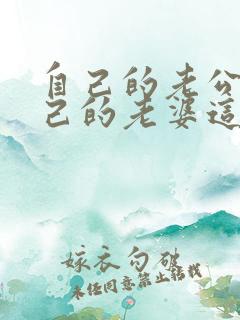 自己的老公
己的老婆這
嫁衣勾破
未任同意禁止转载